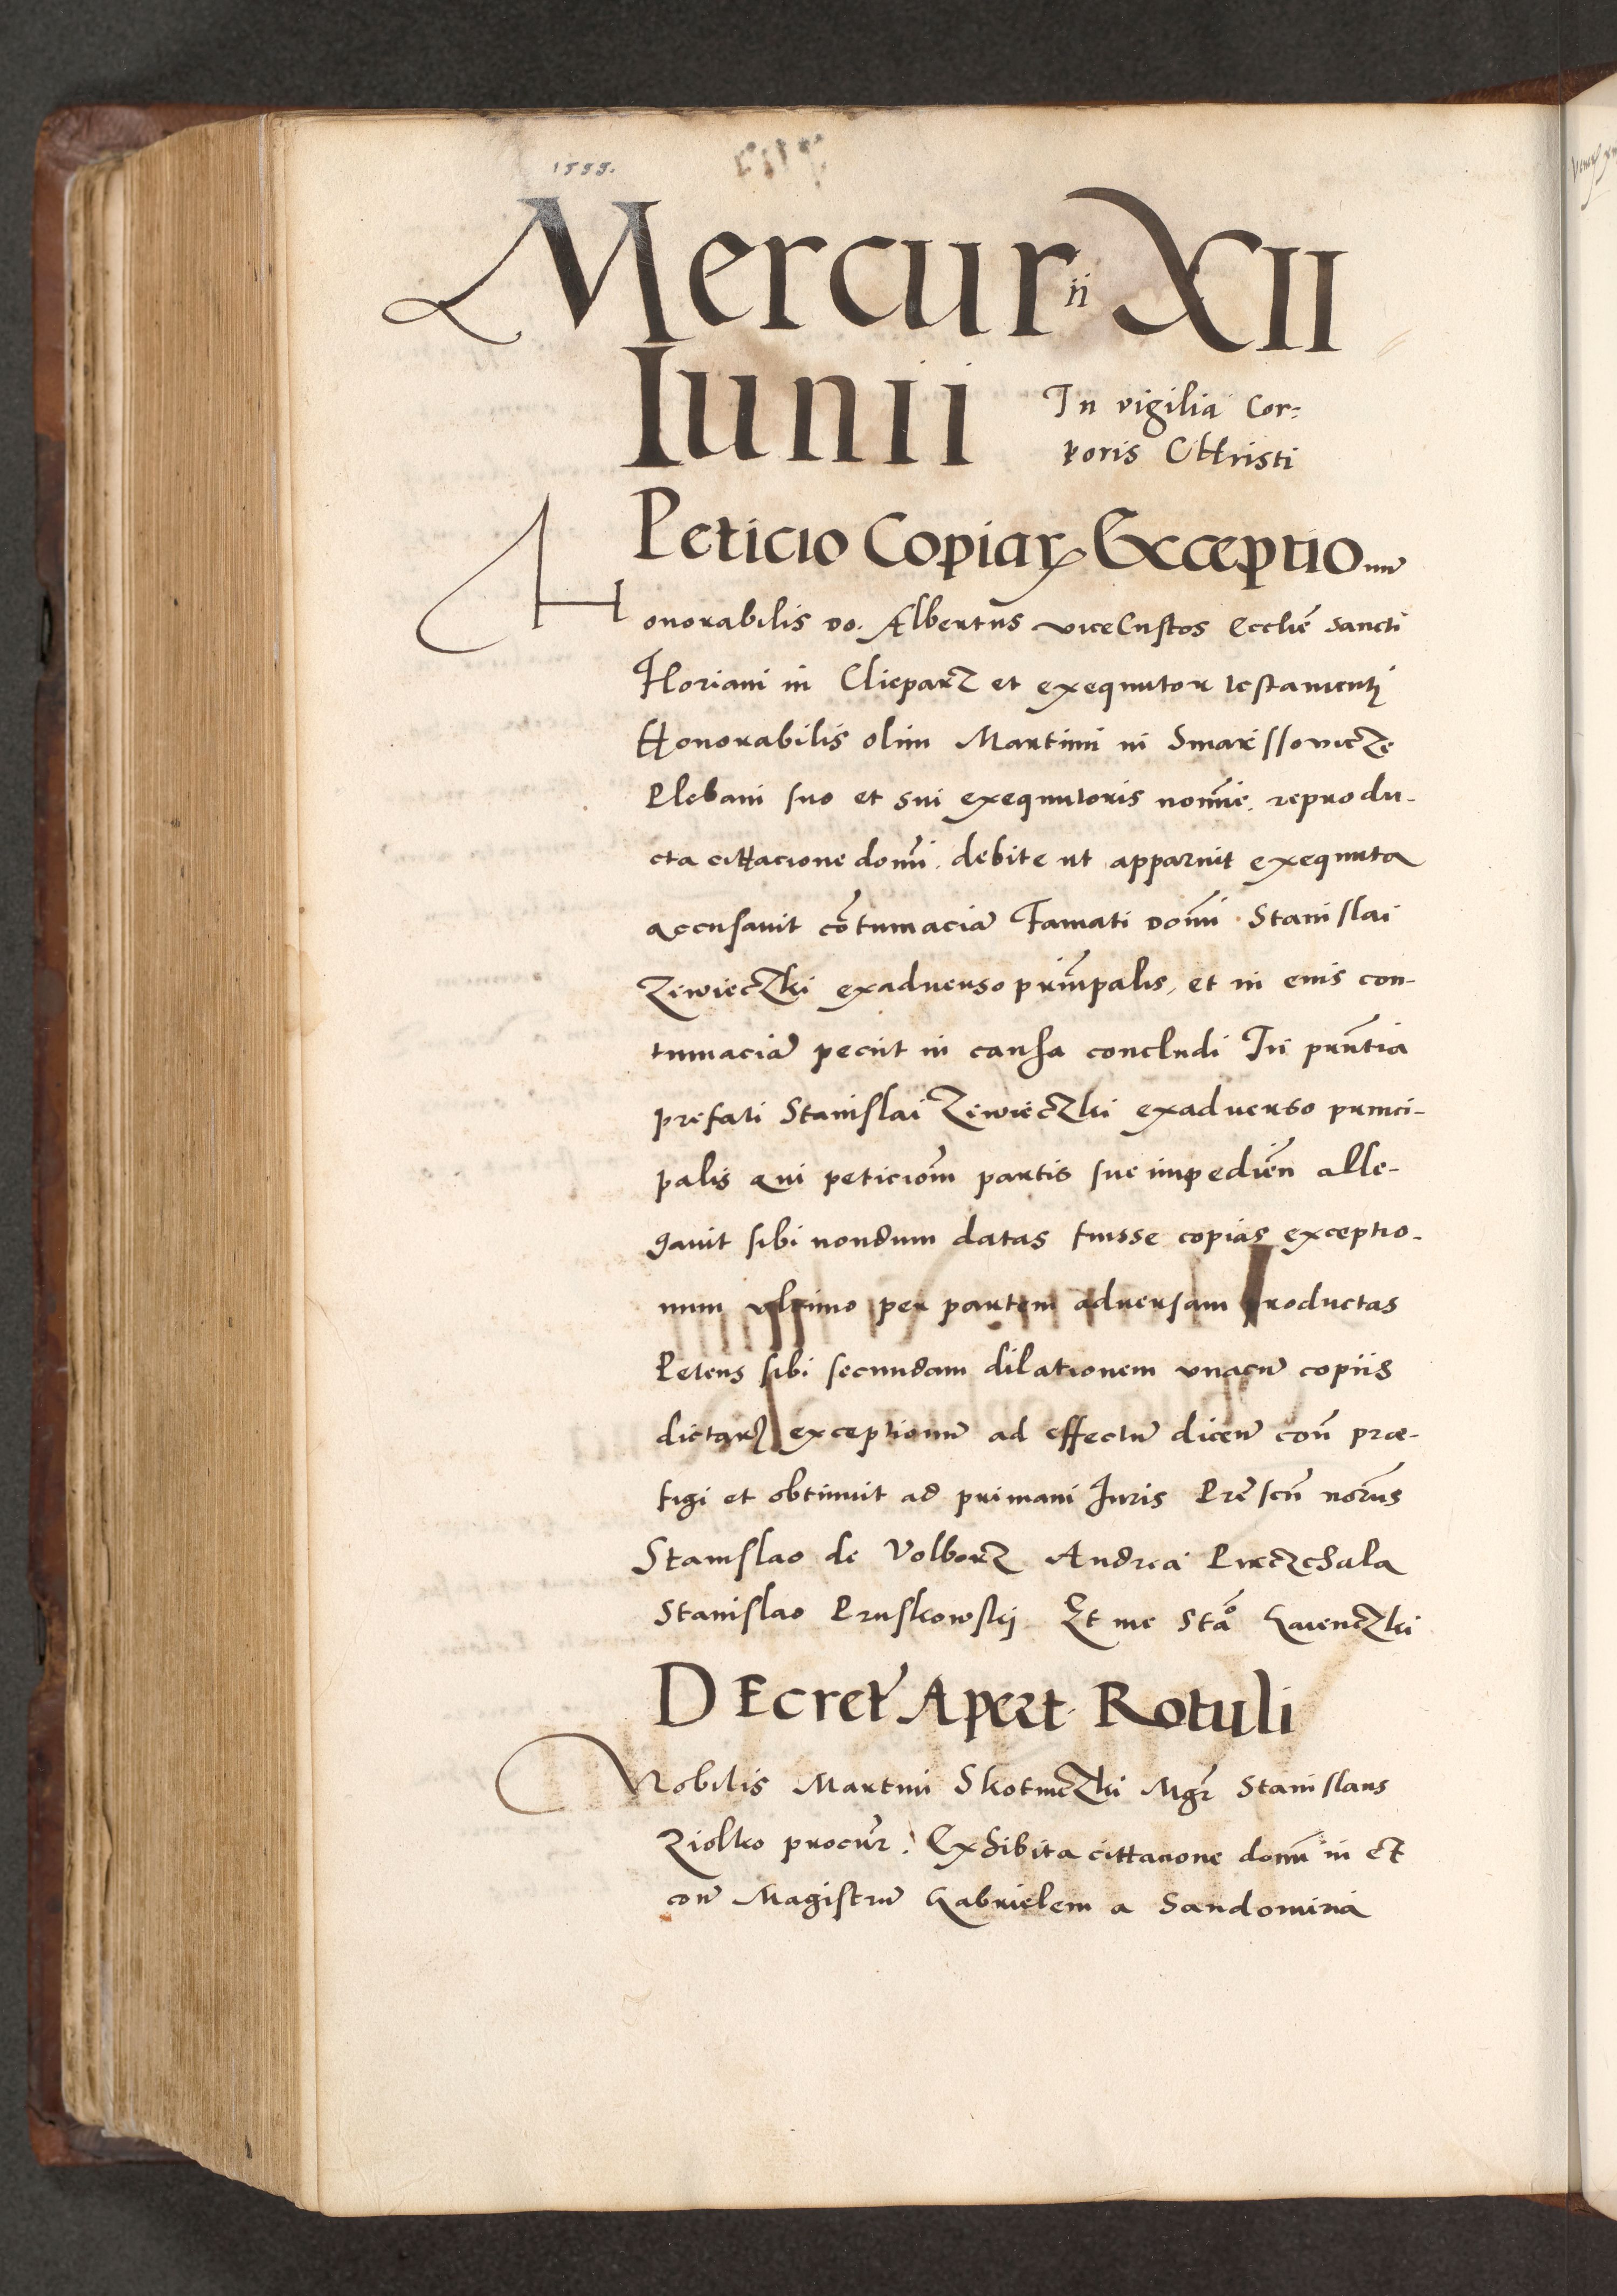 1555.
Mercurii XII
Iunii In vigilia Cor:
poris CHristi
Peticio Copiaꝝ Exceptionu̅
Honorabilis do. Albertus viceCustos Eccliē Sancti
Floriani in Clieparz et exequutor testamenti
Honorabilis olim Martini in Smarssovicze
Plebani suo et sui exequutoris nomi̅e. reprodu-
cta cittacione domi̅. debite ut apparuit exequuta
accusavit co̅tumacia̅ Famati domi̅ Stanislai
Ziwieczki exadverso pri̅npalis, et in eius con-
tumacia̅ peciit in causa concludi In pru̅tia
prefati Stanislai Ziwieczki exadverso princi-
palis qui peticio̅m partis sue impedie̅n alle-
gavit sibi nondum datas fuisse copias exceptio-
num ultimo per partem adversam productas
Petens sibi secundam dilationem unacu̅ copiis
dictarꝝ exceptionu̅ ad effectu̅ dicen̅ con̅ præ-
figi et obtinuit ad primam Juris Pre̅sen̅ nor̅us
Stanislao de Volborz Andrea Pieczchala
Stanislao Pruskowskj Et me Sta̅o Gaienczki
DEcret̅ Apert. Rotuli
Nobilis Martini Skotniczki Mgr̅ Stanislaus
Ziolko procur̅. Exhibita cittacione domi̅ in et
con̅ Magistru̅ Gabrielem a Sandomiria